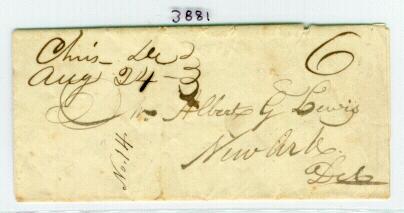 3881
Chris De
Aug 24
6
Mr Albert G Lewis
New Ark
Del
No. 14